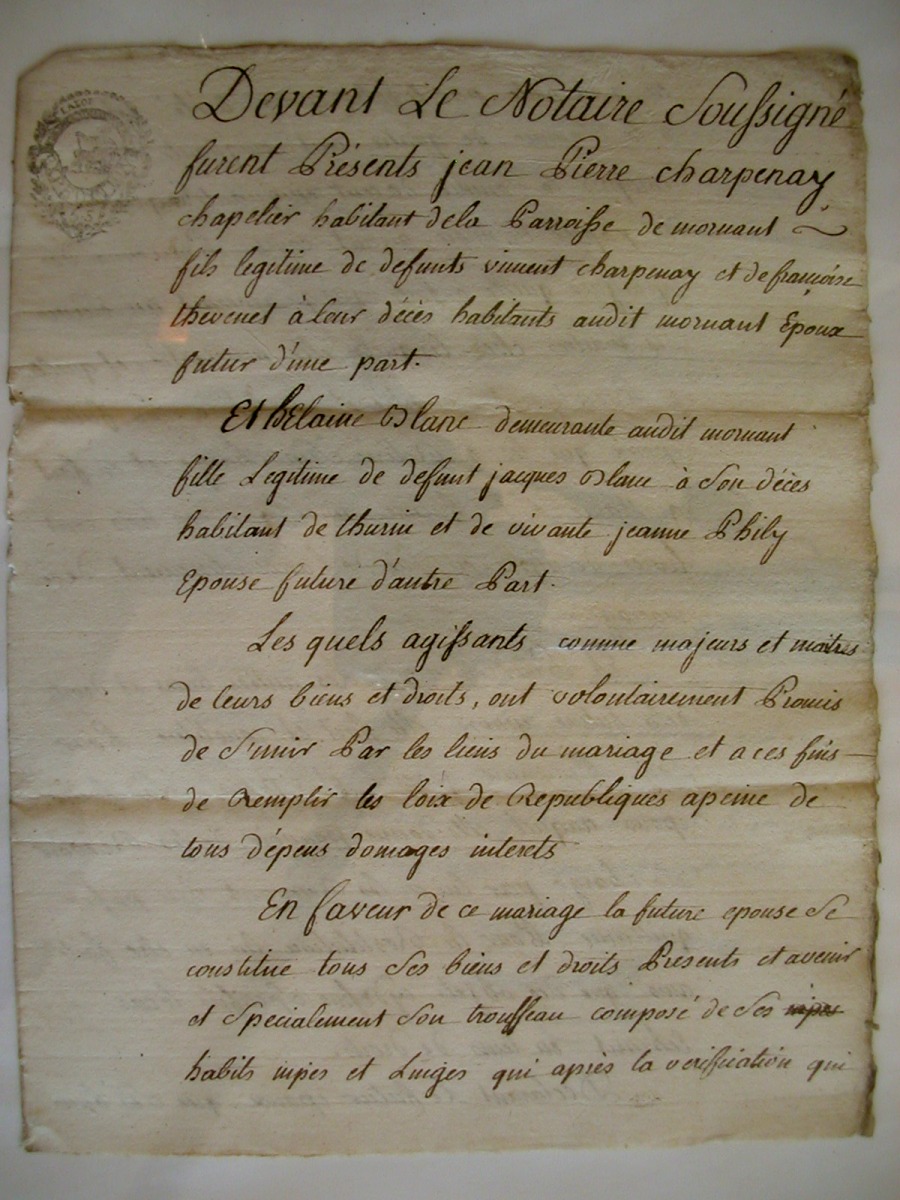 LA LOI
Devant Le Notaire Soussigné
furent Présents jean Pierre charpenay
chapelier habitant dela Parroisse de mornant
fils legitime de defunts vincent charpenay et de françoise
thevenet à leur décès habitants audit mornant Epoux
futur d'une part.
Et hElaine Blanc demeurante audit mornant
fille Legitime de defunt jacques Blanc à Son décès
habitant de thurin et de vivante jeanne Phily
Epouse future d'autre Part.
Les quels agissants comme majeurs et maitres
de leurs biens et droits, ont volontairement Promis
de S'unir Par les liens du mariage et a ces fins
de Remplir les loix de Republiques apeine de
tous dépens domages interets
En faveur de ce mariage la future epouse Se
constitue tous Ses biens et droits Presents et avenir
et Specialement Son trousseau composé de Ses nipes
habits nipes et Linges qui après la verification qui